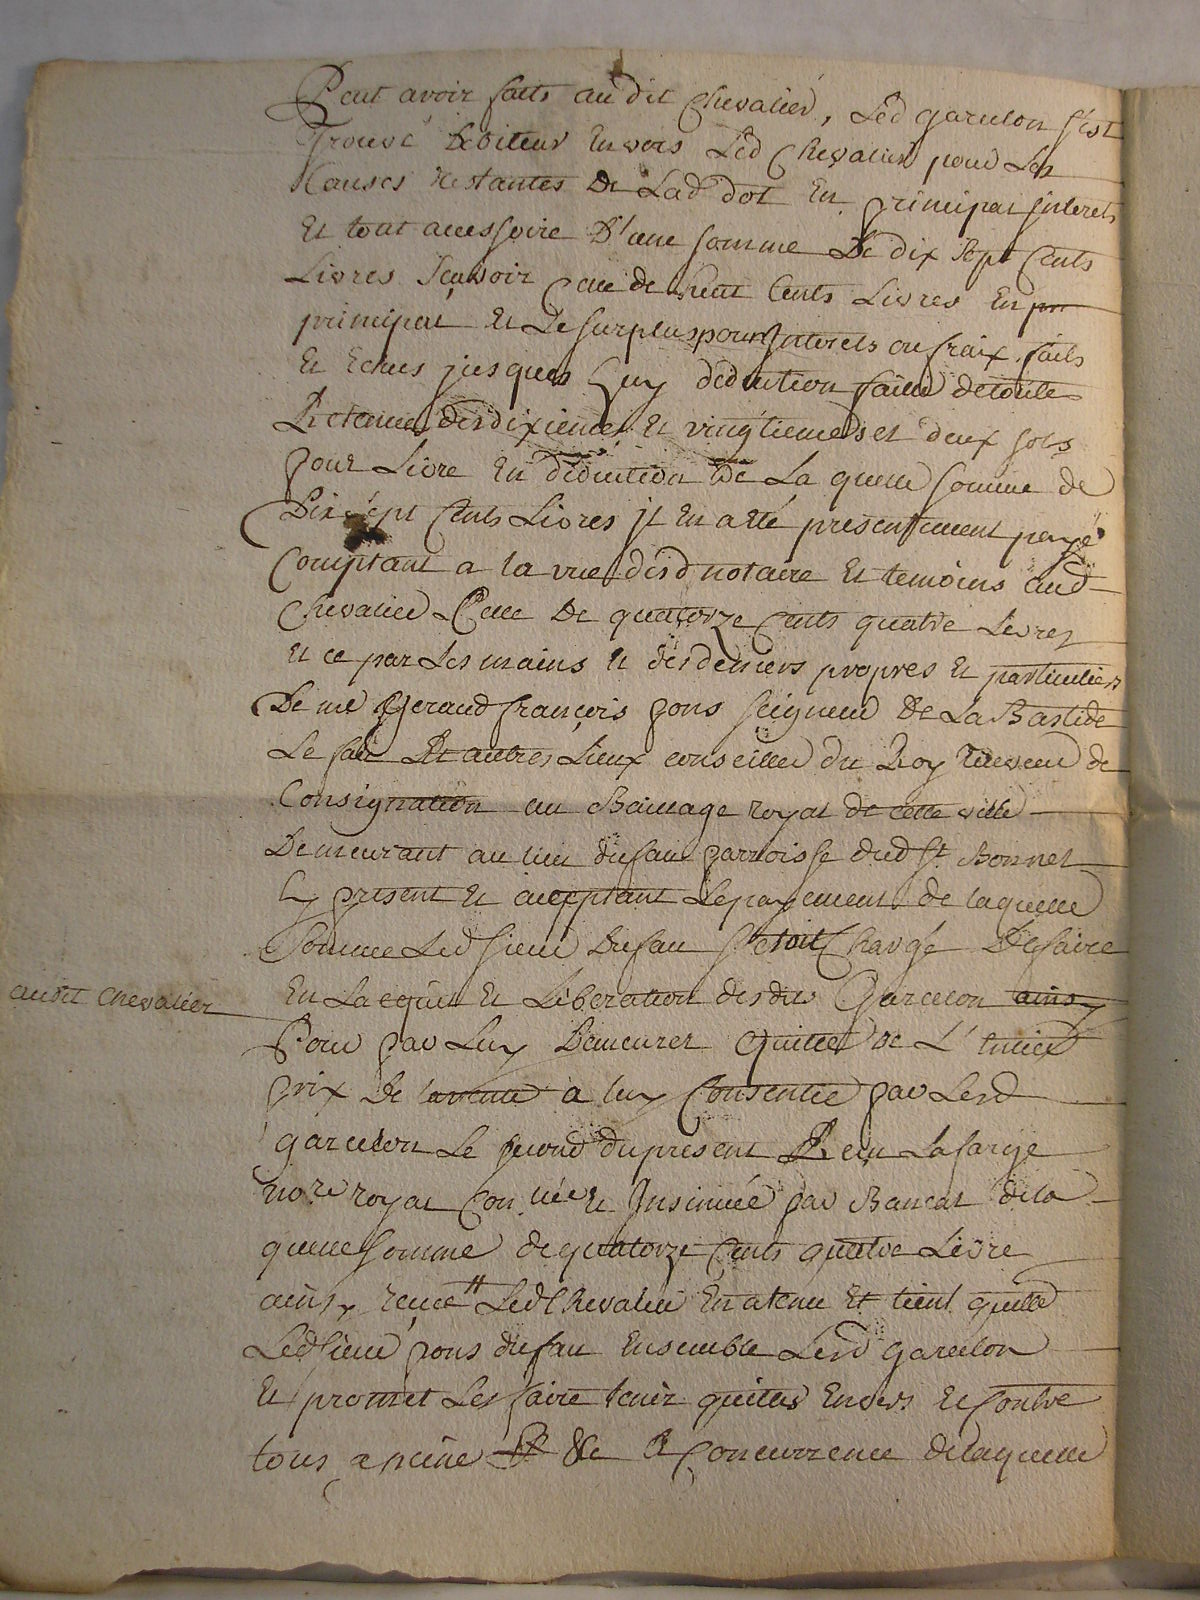 Peut avoir faits audit Chevalier, Led garcelon s'est
Trouvé Debiteur Envers Led Chevalier pour Les
Causes restantes De Lad dot En principal Interets
Et tout accessoire D'une somme De dix sept Cents
Livres Scavoir Celle de huit Cents Livres En
principal Et Le surplus pour Interets ou fraix faits
Et Echus jusques huy déduction faitte de toutte
Retenue des dixiemes Et vingtiemes et deux sols
pour Livre En déduction De La quelle somme de
Dix sept Cents Livres jl En a eté presentement payé
Comptant a la vue desd notaire Et temoins aud
Chevalier Celle De quatorze Cents quatre Livres
Et ce par Les mains Et des deniers propres Et particuliers
De me Geraud françois pons seigneur De La Bastide
Le fau Et autres Lieux conseiller du Roy Receveur de
Consignation au Bailliage royal de cette ville
Demeurant au lieu dufau parroisse dud St. Bonnet
Ly present Et acceptant Le payement de laquelle
Somme Led sieur Dufau s'etoit Chargé De faire
audit Chevalier
En Lacquit Et Liberation desdits Garcelon ainsy
Pour par Luy Demeurer quitte De L'entier
prix De la vente a luy Consentie par Lesd
garcelon Le second du present Reçu Lafarge
nore royal Con.lée Et Insinuée par Bancal de la
quelle somme de quatorze Cents quatre Livre
ainsy reçue Led Chevalier En a tenu Et tient quitte
Led sieur pons dufau Ensemble Lesd garcelon
Et promet Les faire tenir quittes Envers Et Contre
tous a peine &c Et Concurrence de laquelle